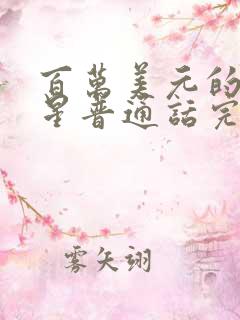 百萬美元的
星普通話完
雾矢翊